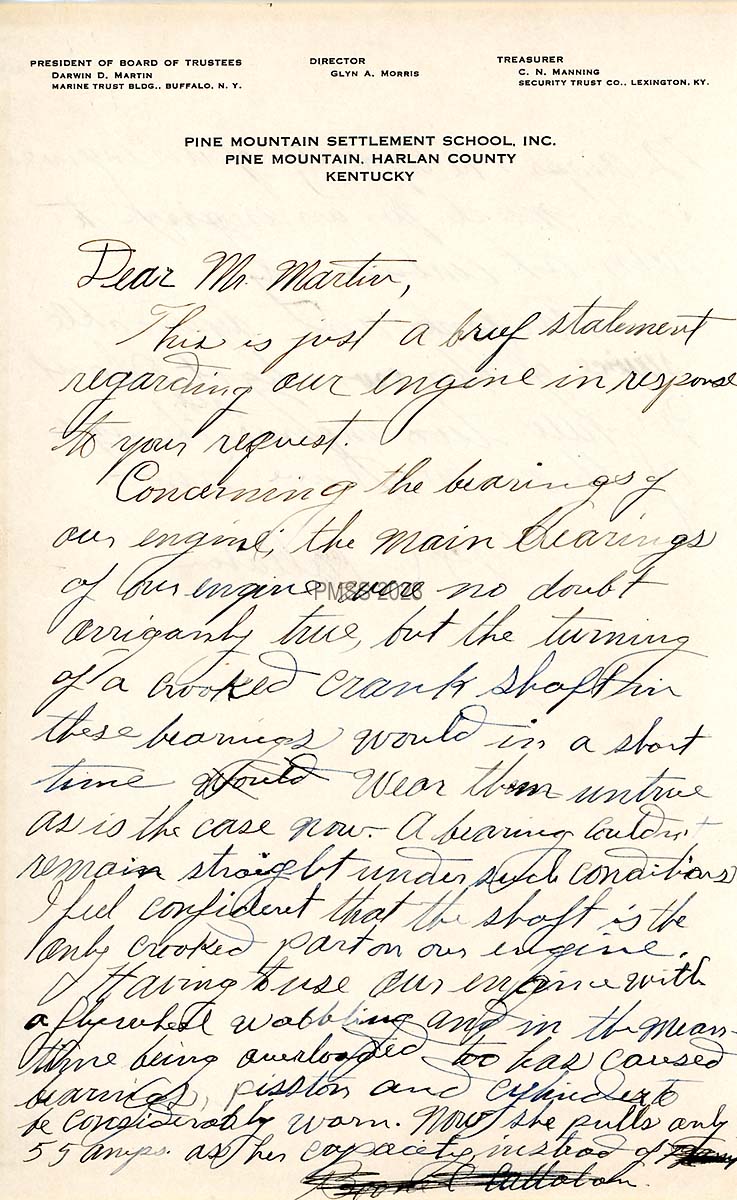 PRESIDENT OF BOARD OF TRUSTEES
DARWIN D. MARTIN
MARINE TRUST BLDG., BUFFALO, N. Y.
DIRECTOR
GLYN A. MORRIS
TREASURER
C. N. MANNING
SECURITY TRUST CO., LEXINGTON, KY.
PINE MOUNTAIN SETTLEMENT SCHOOL, INC.
PINE MOUNTAIN, HARLAN COUNTY
KENTUCKY
Dear Mr. Martin,
This is just a brief statement
regarding our engine in response
to your request.
Concerning the bearings of
our engine; the main bearings
of our engine were no doubt
PMSS 2026
orriganly true, but the turning
of a crooked crank shaft in
these bearings would in a short
time would wear them untrue
as is the case now. A bearing couldn't
remain straight under such conditions
I feel confident that the shaft is the
only crooked part on our engine.
Having to use our engine with
a flywheel wobbling and in the mean-
time being overloaded too has caused
bearings, pisston and cylinder to
be considerably worn. Now she pulls only
55 amps. as her capacity instead of
Boone C Callahan.